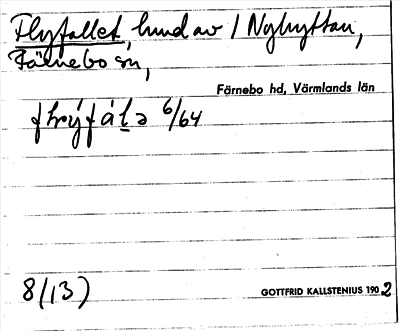 Flyfallet, hund av / Nyhyttan,
Färnebo sn,
Färnebo hd, Värmlands län
6/64
8/13)
GOTTFRID KALLSTENIUS 1902